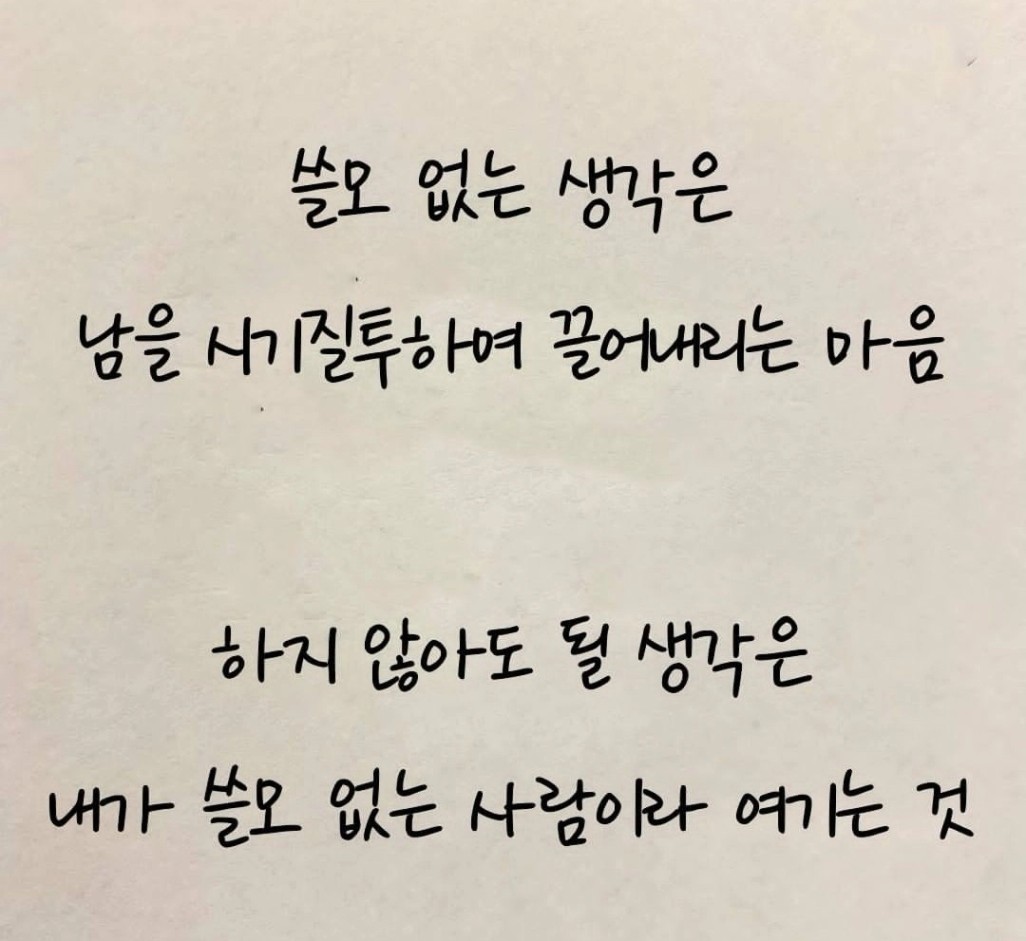 쓸모 없는 생각은
남을 시기질투하여 끌어내리는 마음
하지 않아도 될 생각은
내가 쓸모 없는 사람이라 여기는 것